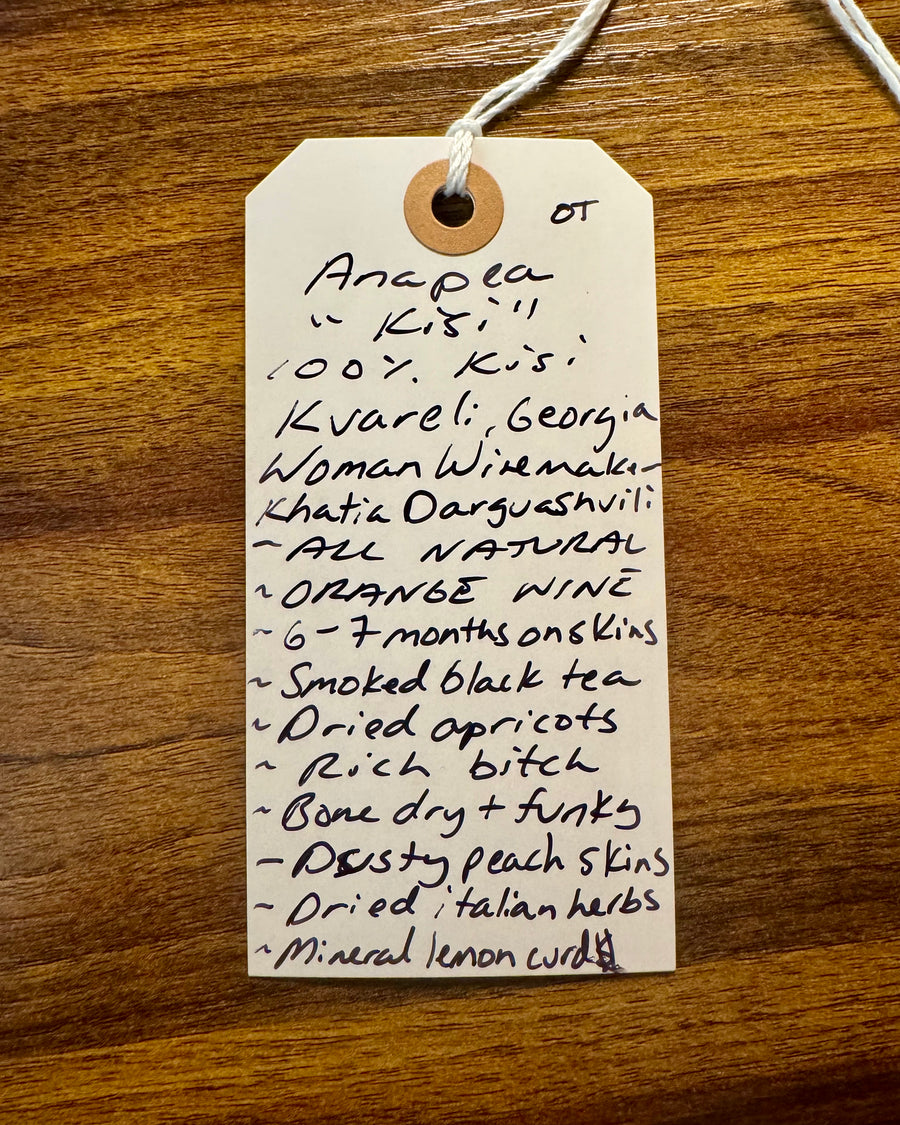 OT
Anapea
"Kisi"
100% Kisi
Kvareli, Georgia
Woman Winemaker
Khatia Darguashvili
~ ALL NATURAL
~ ORANGE WINE
~ 6-7 months on skins
~ Smoked black tea
~ Dried apricots
~ Rich bitch
~ Bone dry + funky
- Dusty peach skins
~ Dried italian herbs
~ Mineral lemon curd